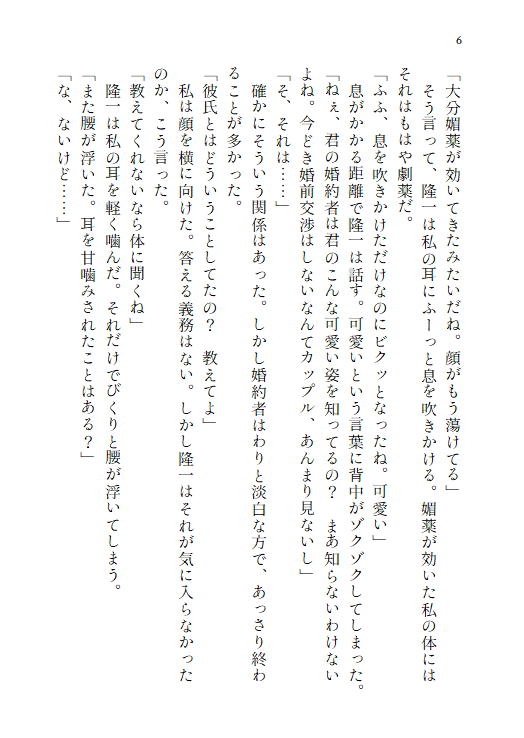 6
「大分媚薬が効いてきたみたいだね。顔がもう蕩けてる」
そう言って、隆一は私の耳にふーっと息を吹きかける。媚薬が効いた私の体には
それはもはや劇薬だ。
「ふふ、息を吹きかけただけなのにビクッとなったね。可愛い」
息がかかる距離で隆一は話す。可愛いという言葉に背中がゾクゾクしてしまった。
「ねぇ、君の婚約者は君のこんな可愛い姿を知ってるの？　まあ知らないわけない
よね。今どき婚前交渉はしないなんてカップル、あんまり見ないし」
「そ、それは……」
確かにそういう関係はあった。しかし婚約者はわりと淡白な方で、あっさり終わ
ることが多かった。
「彼氏とはどういうことしてたの？　教えてよ」
私は顔を横に向けた。答える義務はない。しかし隆一はそれが気に入らなかった
のか、こう言った。
「教えてくれないなら体に聞くね」
隆一は私の耳を軽く噛んだ。それだけでびくりと腰が浮いてしまう。
「また腰が浮いた。耳を甘噛みされたことはある？」
「な、ないけど……」